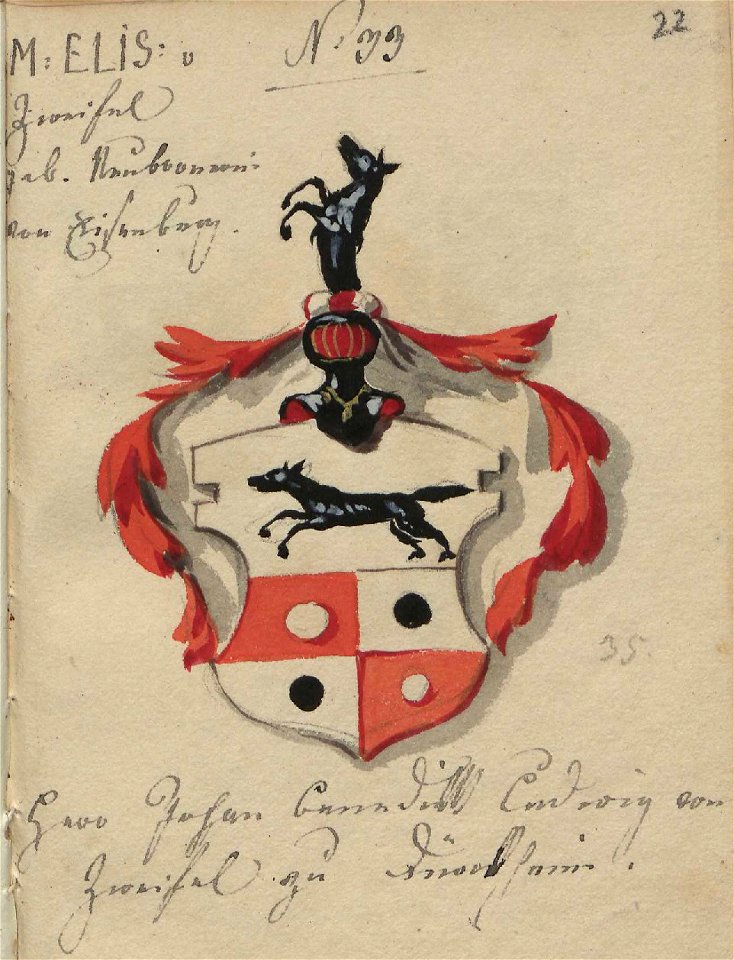 22
M: ELIS: v
N. 33
Zweifel
geb. Neubronnerin
von Eisenberg.
35.
Herr Johan Benedikt Ludwig von
Zweifel zu Dürckheim.